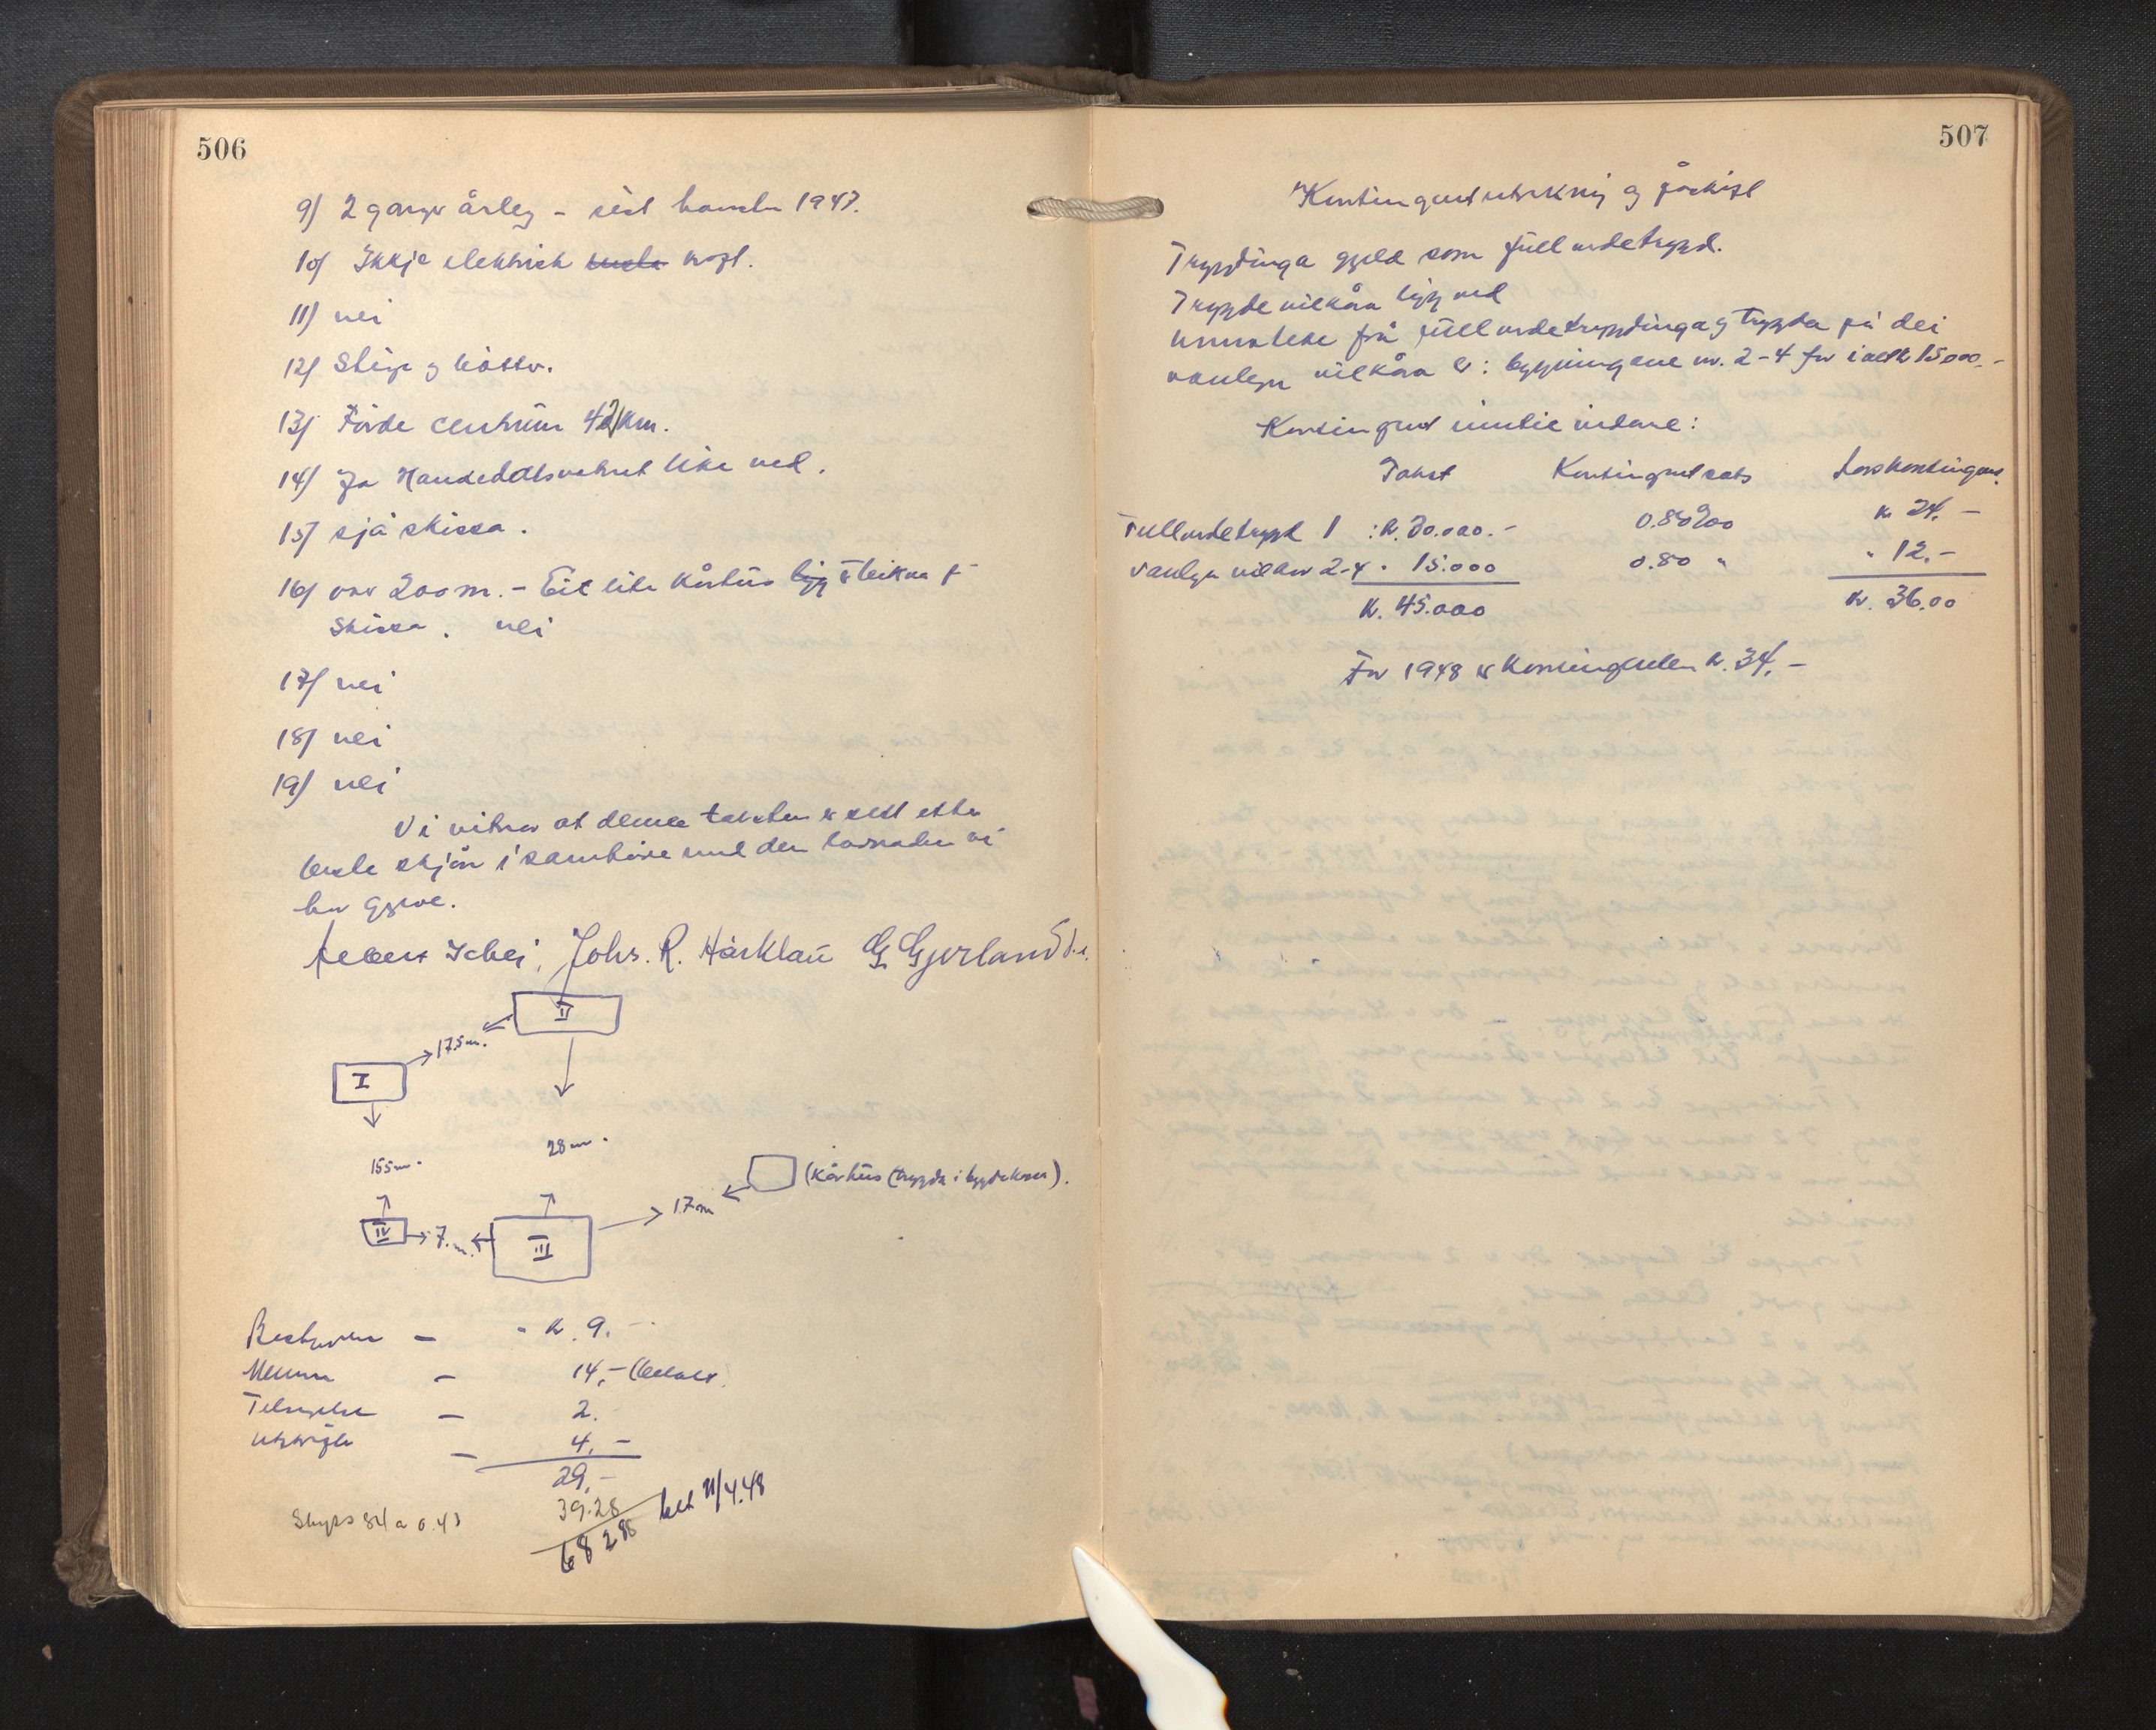 506
9) 2 gonger årleg - sist hausten 1947.
10) Ikkje elektrisk kogt.
11) nei
12) Stige og bøtter.
13) Förde centrum 42 km.
14) Ja Handedalsvatnet like ved.
15) sjå skissa.
16) over 200 m. - Eit lite Kårhus ligg teikna på
Skissa. nei
17) nei
18) nei
19) nei
Vi vitner at denne taksten er sett etter
beste skjøn i samhøve med den lovnaden vi
har gjeve.
Schei, Johs. R. Hårklau G. Gjerland
II
17.5 m.
I
28 m.
155 m.
(Kårhus (trygda i bygdekassa).
17 m
IV
7. m.
III
Bestyrar - " kr. 9. -
Menn - 14,- (betalt)
Tilsegelse - 2.
Utskrift - 4,-
29,-
Skyss 84 a 0.43 39.28
68 28 bet 21/4.48
507
Kontingentutrekning og påskift
Trygdinga gjeld som fullverdetrygd.
Trygdevilkåra ligg ved
Unnateke frå fullverdetrygdinga og trygda på dei
vanlege vilkåra er: bygningane nr. 2-4 for i alt kr 15000,-
Kontingent vidare:
Takst Kontingentsats Årskontingent
Fullverdetrygd 1 : kr. 30.000.- 0.80 ‰ kr 24,-
vanlege vilkår 2-4 " 15.000 0.80 " " 12.-
kr. 45.000 kr. 36.00
For 1948 er kontingenten kr. 34,-